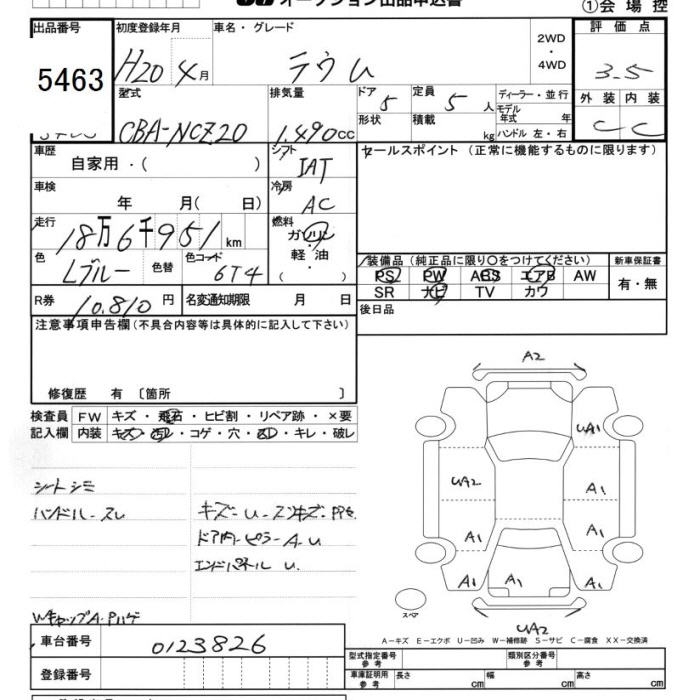 オークション出品申込書
①会場控
出品番号
5463
初度登録年月
H20 4月
車名・グレード
ラウム
2WD
・
4WD
評価点
3.5
型式
CBA-NCZ20
排気量
1.490cc
ドア
5
形状
定員
5人
積載
kg
ディーラー・並行
モデル年式
年
ハンドル 左・右
外装
内装
C
C
車歴
自家用・( )
シフト
IAT
セールスポイント (正常に機能するものに限ります)
車検
年 月( 日)
冷房
AC
走行
18万6千951km
燃料
ガソリン
軽油
( ・ )
色
Lブルー
色替
色コード
6T4
装備品(純正品に限り〇をつけてください)
PS PW ABS エアB AW
SR ナビ TV カワ
新車保証書
有・無
R券
10.810円
名変通知期限
月 日
後日品
注意事項申告欄(不具合内容等は具体的に記入して下さい)
修復歴 有 〔箇所 〕
検査員
記入欄
FW
キズ・飛石・ヒビ割・リペア跡・×要
内装
キズ・汚レ・コゲ・穴・・キレ・破レ
シートシミ
ハンドルースレ
キズーU-
ドア内-ピラーA.U
エンドパネル U.
WキャップA.Pハゲ
A2
UA1
UA2
A1
A1
A1
A1
A1
A1
UA2
スペア
A-キズ E-エクボ U-凹み W-補修跡 S-サビ C-腐食 XX-交換済
車台番号
0123826
登録番号
型式指定番号
参考
類別区分番号
参考
車庫証明用
参考
長さ
cm
幅
cm
高さ
cm